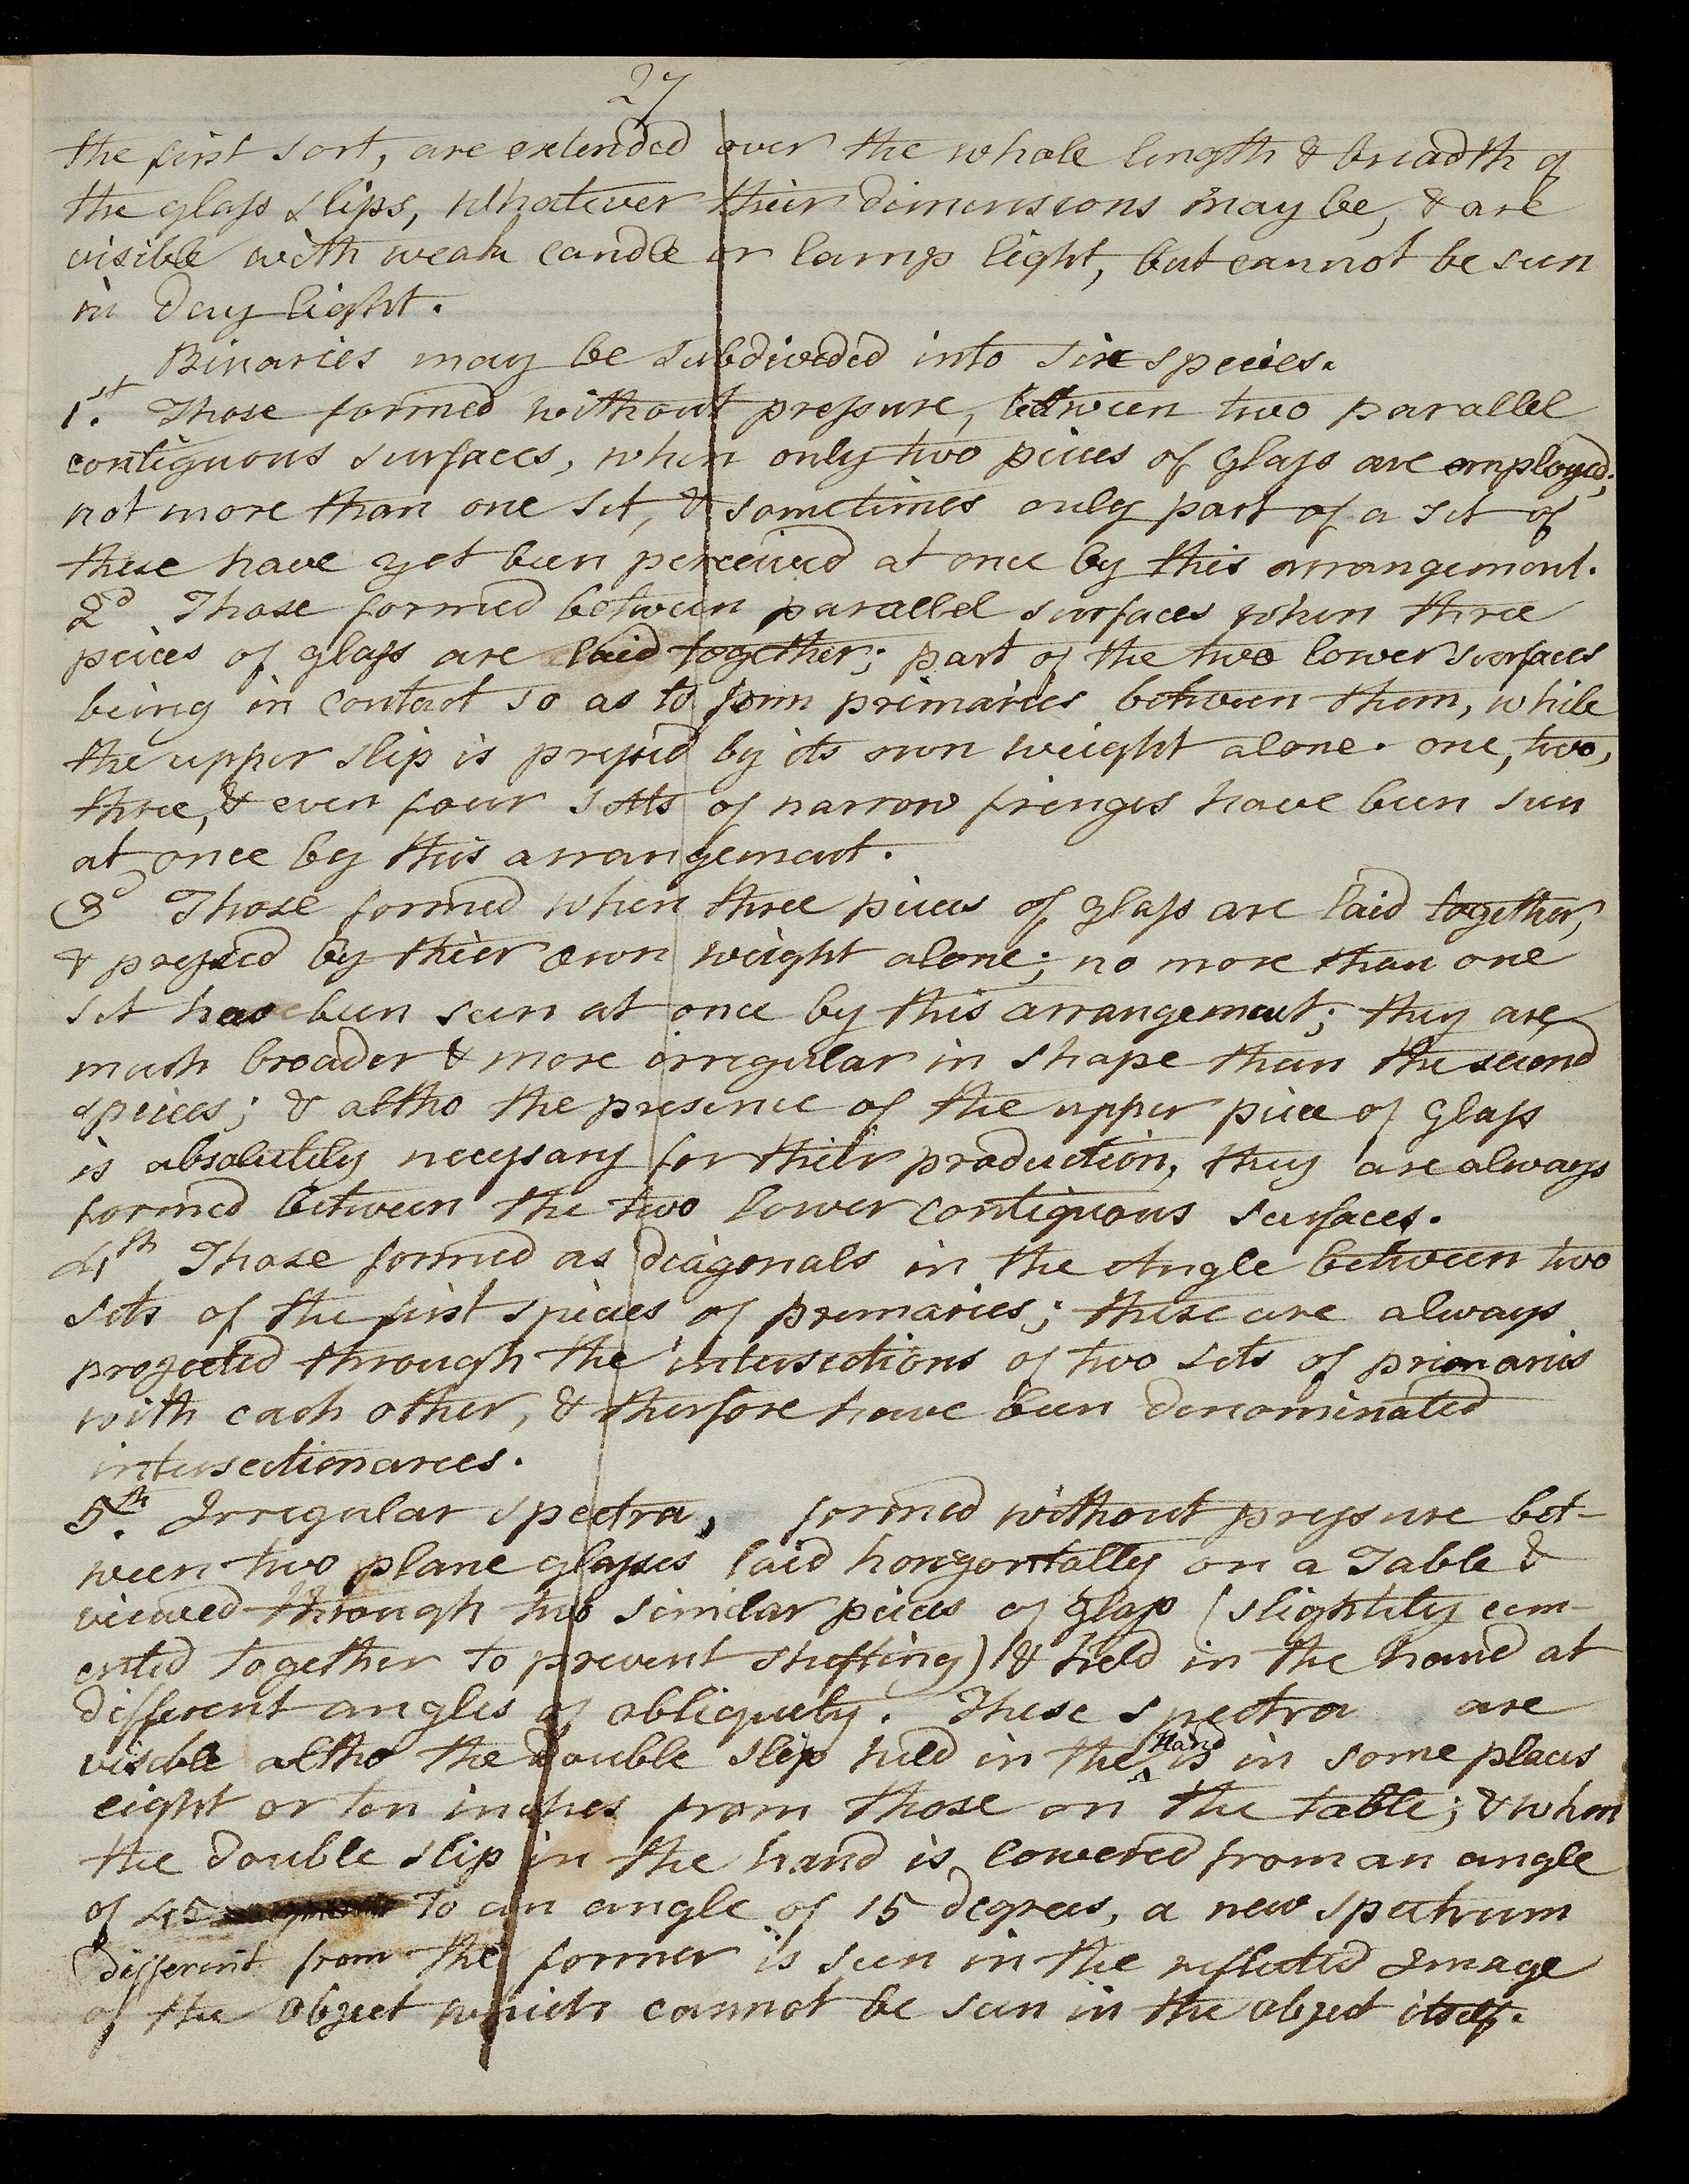 27
the first sort, are extended over the whole length & breadth of
the glass slips, whatever their dimensions may be, & are
visible with weak candle or lamp light, but cannot be seen
in day light.
Binaries may be subdivided into six species.
1.st Those formed without pressure, between two parallel
contiguous surfaces, when only two pieces of glass are employed;
not more than one set, & sometimes only part of a set of
these have yet been perceived at once by this arrangement.
2d Those formed between parallel surfaces when three
peices of glass are laid together; part of the two lower surfaces
being in contact so as to form primaries between them, while
the upper slip is pressed by its own weight alone. one, two,
three, & even four setts of narrow fringes have been seen
at once by this arrangement.
3d Those formed when three pieces of glass are laid together,
& pressed by thier own weight alone; no more than one
set has been seen at once by this arrangement; they are
much broader & more irregular in shape than the second
species; & altho the presence of the upper piece of glass
is absolutely necessary for their production, they are always
formed between the two lower contiguous surfaces.
4th Those formed as diagonals in the Angle between two
sets of the first species of primaries; these are always
projected through the intersections of two sets of primaries
with each other, & therfore have been denominated
intersectionaries.
5.th Irregular spectra, formed without pressure bet-
ween two plane glasses laid horizontally on a Table &
viewed through two similar peices of glass (slightly cem-
ented together to prevent shifting) & held in the hand at
different angles of obliquity. These spectra are
visible altho the double slip held in the Hand is in some places
eight or ten inches from those on the table; & when
the double slip in the hand is lowered from an angle
of 45 to an angle of 15 degrees, a new spectrum
different from the former is seen in the reflected Image
of the object which cannot be seen in the object itself.